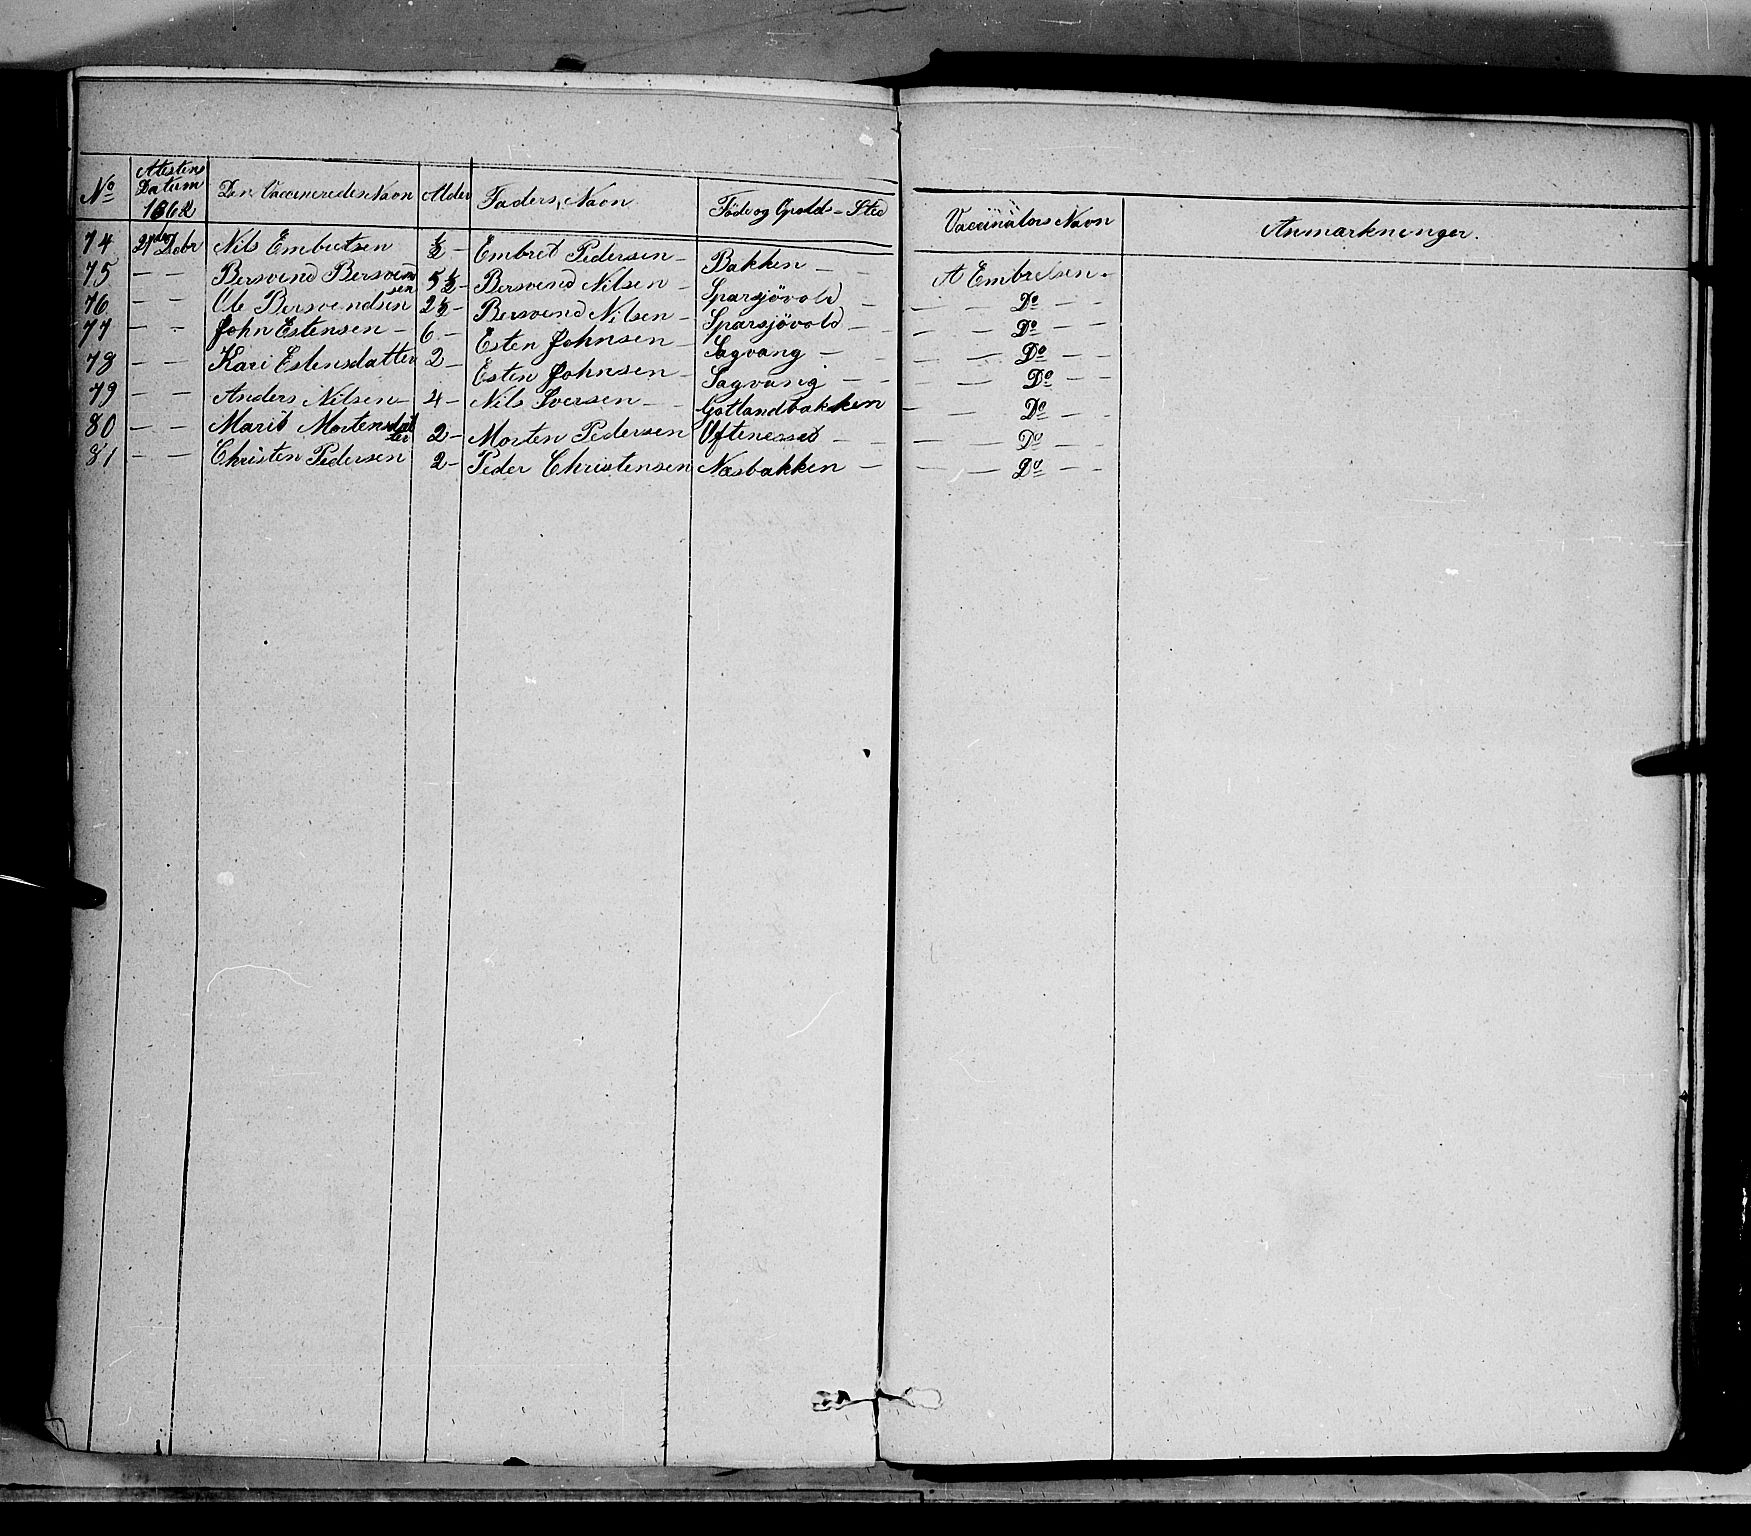 No Attestens Datum 1862 Den Vaccineredes Navn Alder Faders Navn Föde og Opold-Sted Vaccinators Navn Anmærkninger.
74 Nils Embretsen ½ - Embret Pedersen - Bakken - - A Embretsen -
75 - - Bersvend Bersvendsen 5½ - Bersvend Nilsen - Sparsjövold - - - Do - -
76 - - Ole Bersvendsen 2½ - Bersvend Nilsen - Sparsjövold - - - Do - -
77 - - John Estensen - 6 - Esten Johnsen - Sagvang - - - - Do - -
78 - - Kari Estensdatter 2 - Esten Johnsen - Sagvang - - - - Do - -
79 - - Anders Nilsen - 4 - Nils Iversen - - Gotlandbakken - - Do - -
80 - - Marit Mortensdatter 2 - Morten Pedersen - - - - Do - -
81 - - Christen Pedersen 2 - Peder Christensen Næsbakken - - - Do - -